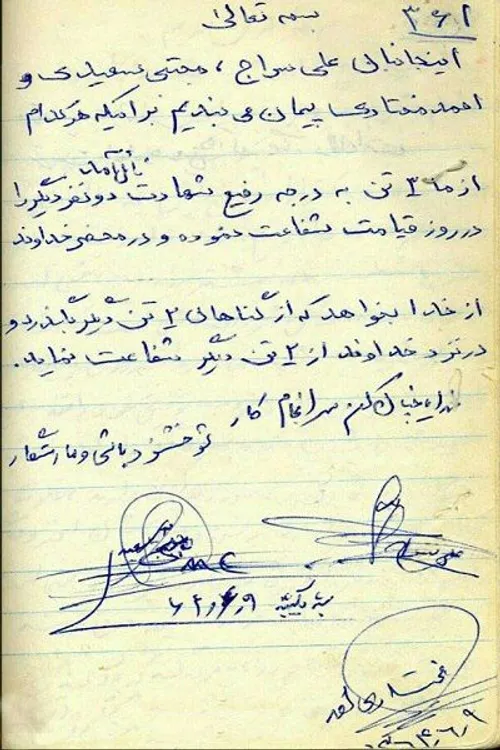 بسمه تعالی
اینجانبان علی سراج ، مجتبی سعیدی و
احمد مختاری پیمان می بندیم بر اینکه هر کدام
از ما ۳ تن به درجه رفیع شهادت نائل آمد دو نفر دیگر را
در روز قیامت شفاعت نموده و در محضر خداوند
از خدا بخواهد که از گناهان ۲ تن دیگر بگذرد و
در نزد خداوند از ۲ تن دیگر شفاعت نماید.
خدایا چنان کن سرانجام کار
تو خشنود باشی و ما رستگار
علی سراج
شب یکشنبه
مختاری احمد